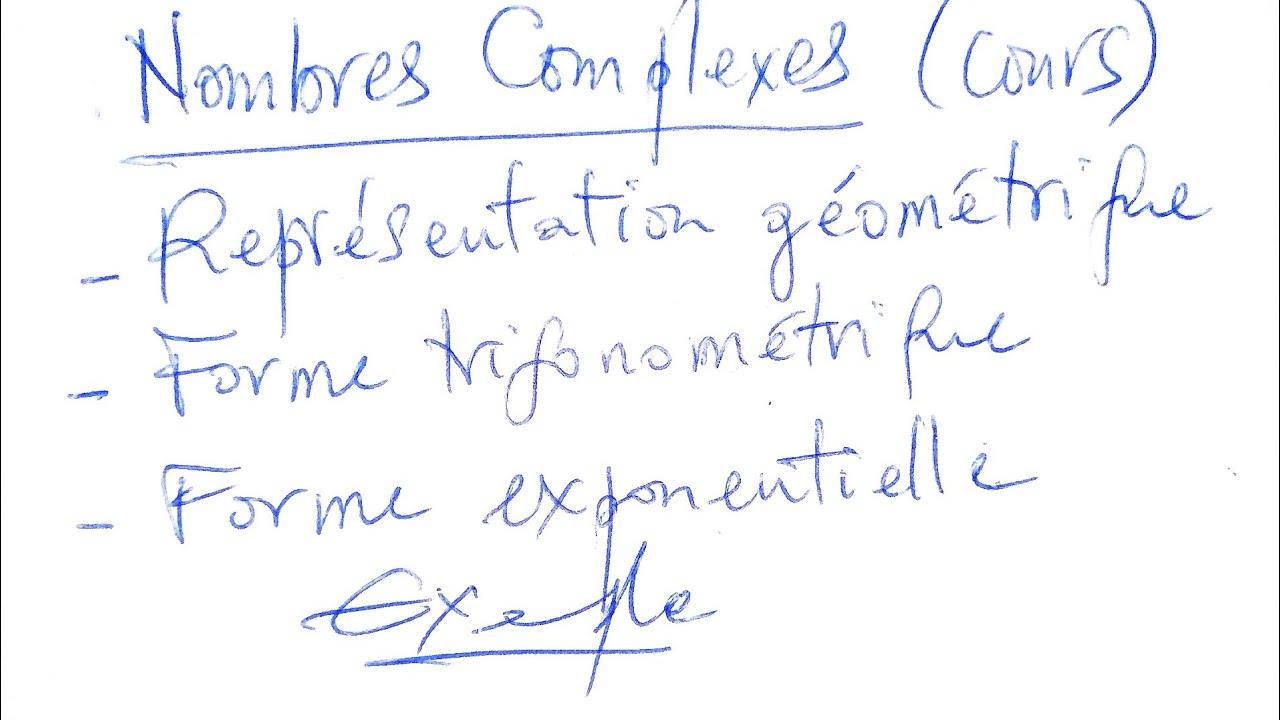 Nombres Complexes (cours)
- Représentation géométrique
- Forme trigonométrique
- Forme exponentielle
Exemple